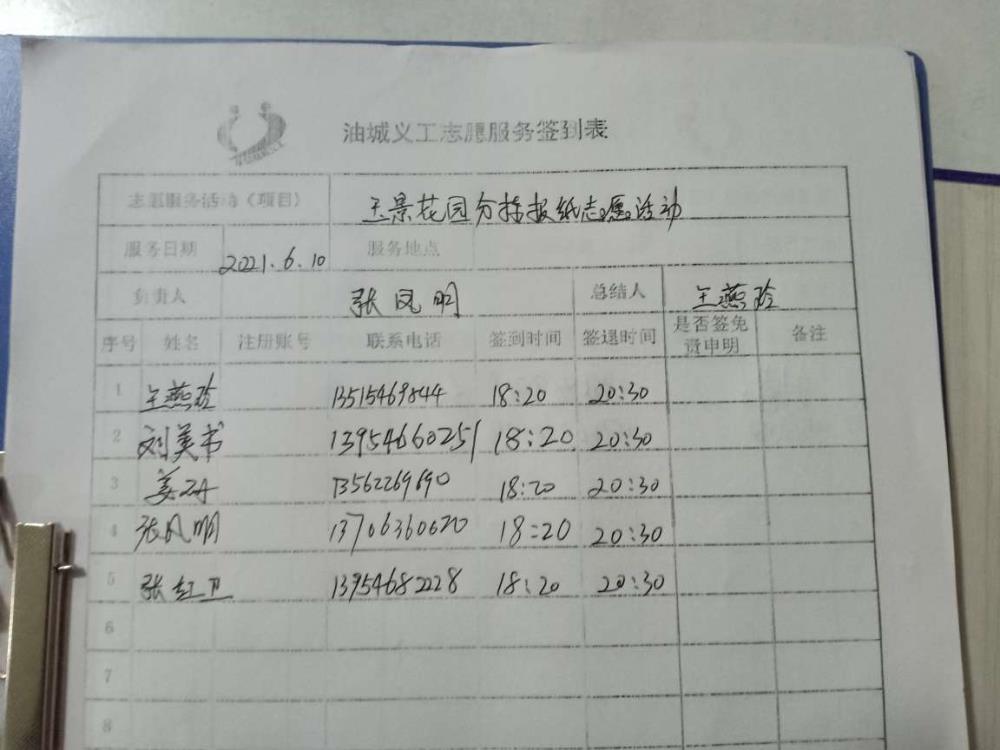 油城义工志愿服务签到表
志愿服务活动（项目） 玉景花园分拣报纸志愿活动
服务日期 2021.6.10 服务地点
负责人 张凤明 总结人 王燕玲
序号 姓名 注册账号 联系电话 签到时间 签退时间 是否签免责申明 备注
1 王燕玲 13515469544 18:20 20:30
2 刘美书 13954660251 18:20 20:30
3 姜 13562269690 18:20 20:30
4 张凤明 13706360620 18:20 20:30
5 张红卫 13954682228 18:20 20:30
6
7
8